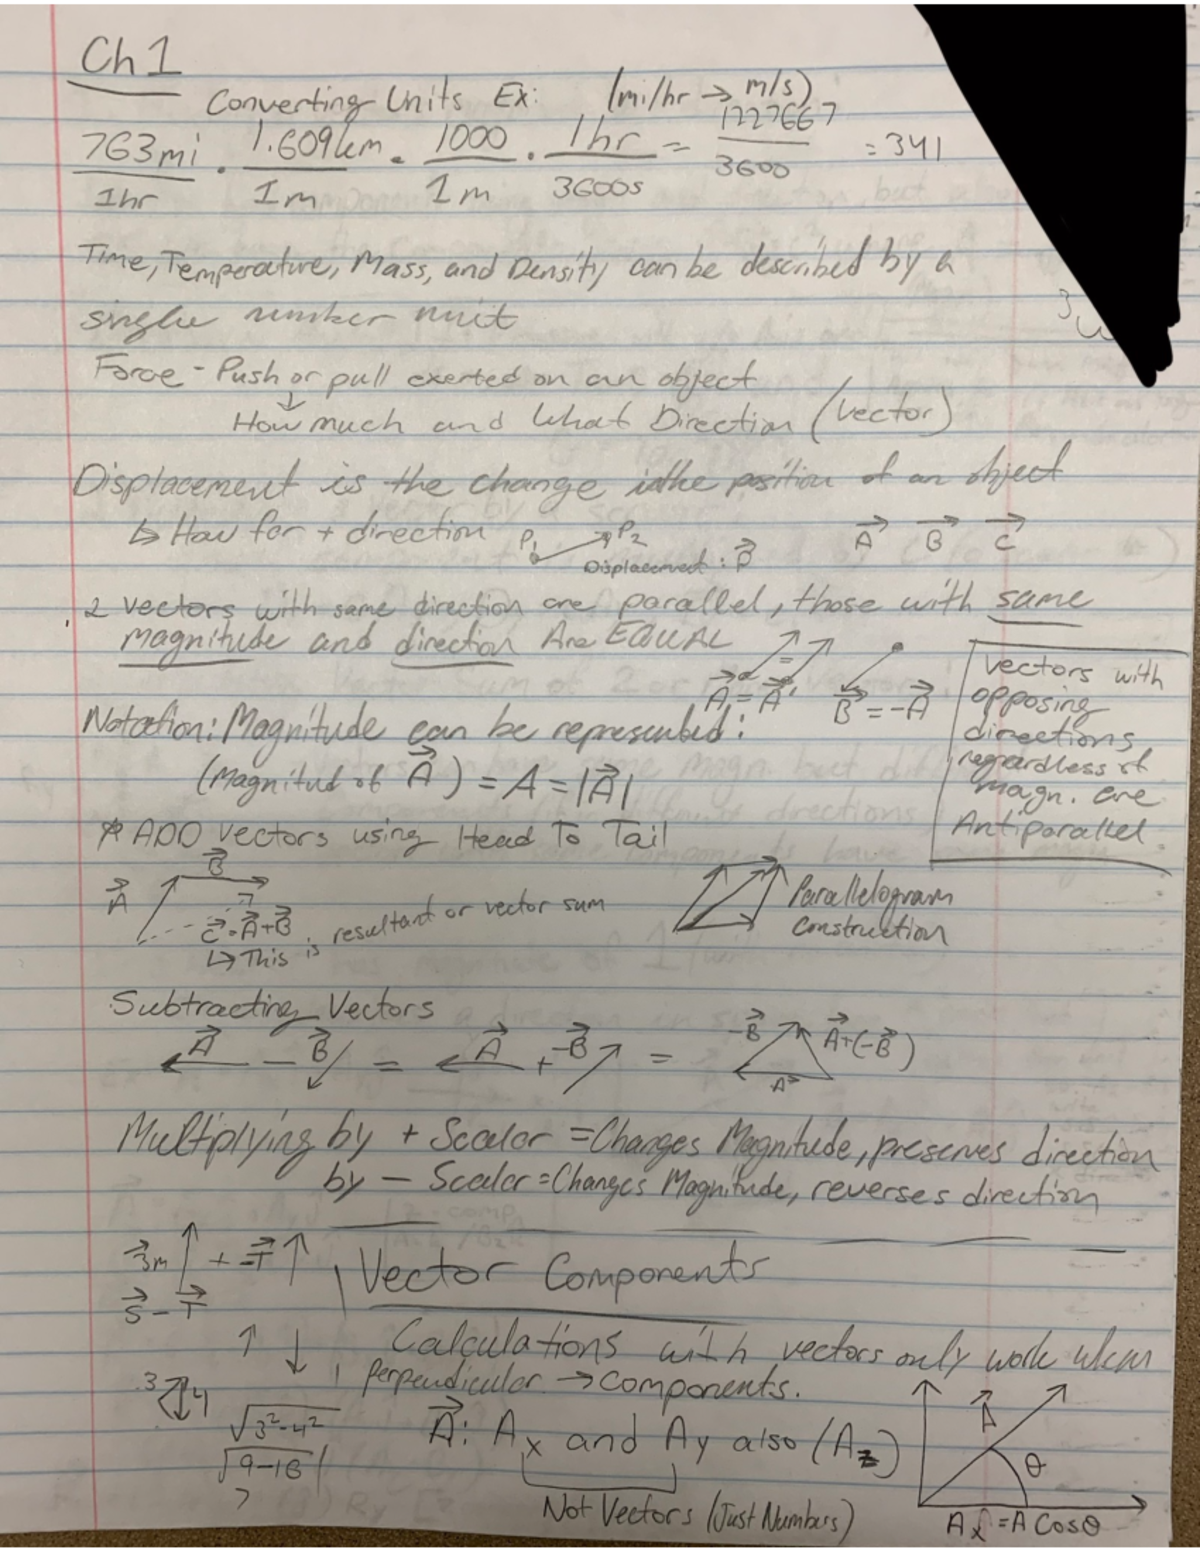 Ch 1
Converting Units Ex: (mi/hr → m/s)
763mi/1hr · 1.609km/1m · 1000/1m · 1hr/3600s = 1227667/3600 = 341
Time, Temperature, Mass, and Density can be described by a
single number unit
Force - Push or pull exerted on an object
↓
How much and What Direction (Vector)
Displacement is the change in the position of an object
↳ How far + direction P₁ P₂ Displacement: P⃗ A⃗ B⃗ C⃗
2 vectors with same direction are parallel, those with same
magnitude and direction Are EQUAL
A⃗ = A⃗' B⃗ = -A⃗
Vectors with
opposing
directions
regardless of
magn. are
Antiparallel
Notation: Magnitude can be represented:
(Magnitud of A⃗) = A = |A⃗|
* ADD vectors using Head To Tail
A⃗ B⃗
C⃗ = A⃗+B⃗
↳ This is resultant or vector sum
Parallelogram
Construction
Subtracting Vectors
A⃗ - B⃗ = A⃗ + -B⃗ = -B⃗ A⃗+(-B⃗) A⃗
Multiplying by + Scalar = Changes Magnitude, preserves direction
by - Scalar = Changes Magnitude, reverses direction
3m + -T⃗
S⃗ - T⃗
Vector Components
Calculations with vectors only work when
perpendicular → components.
3 4
√3²-4²
√9-16
A⃗: Ax and Ay also (Az)
Not Vectors (Just Numbers)
A⃗ θ
Ax = A Cosθ